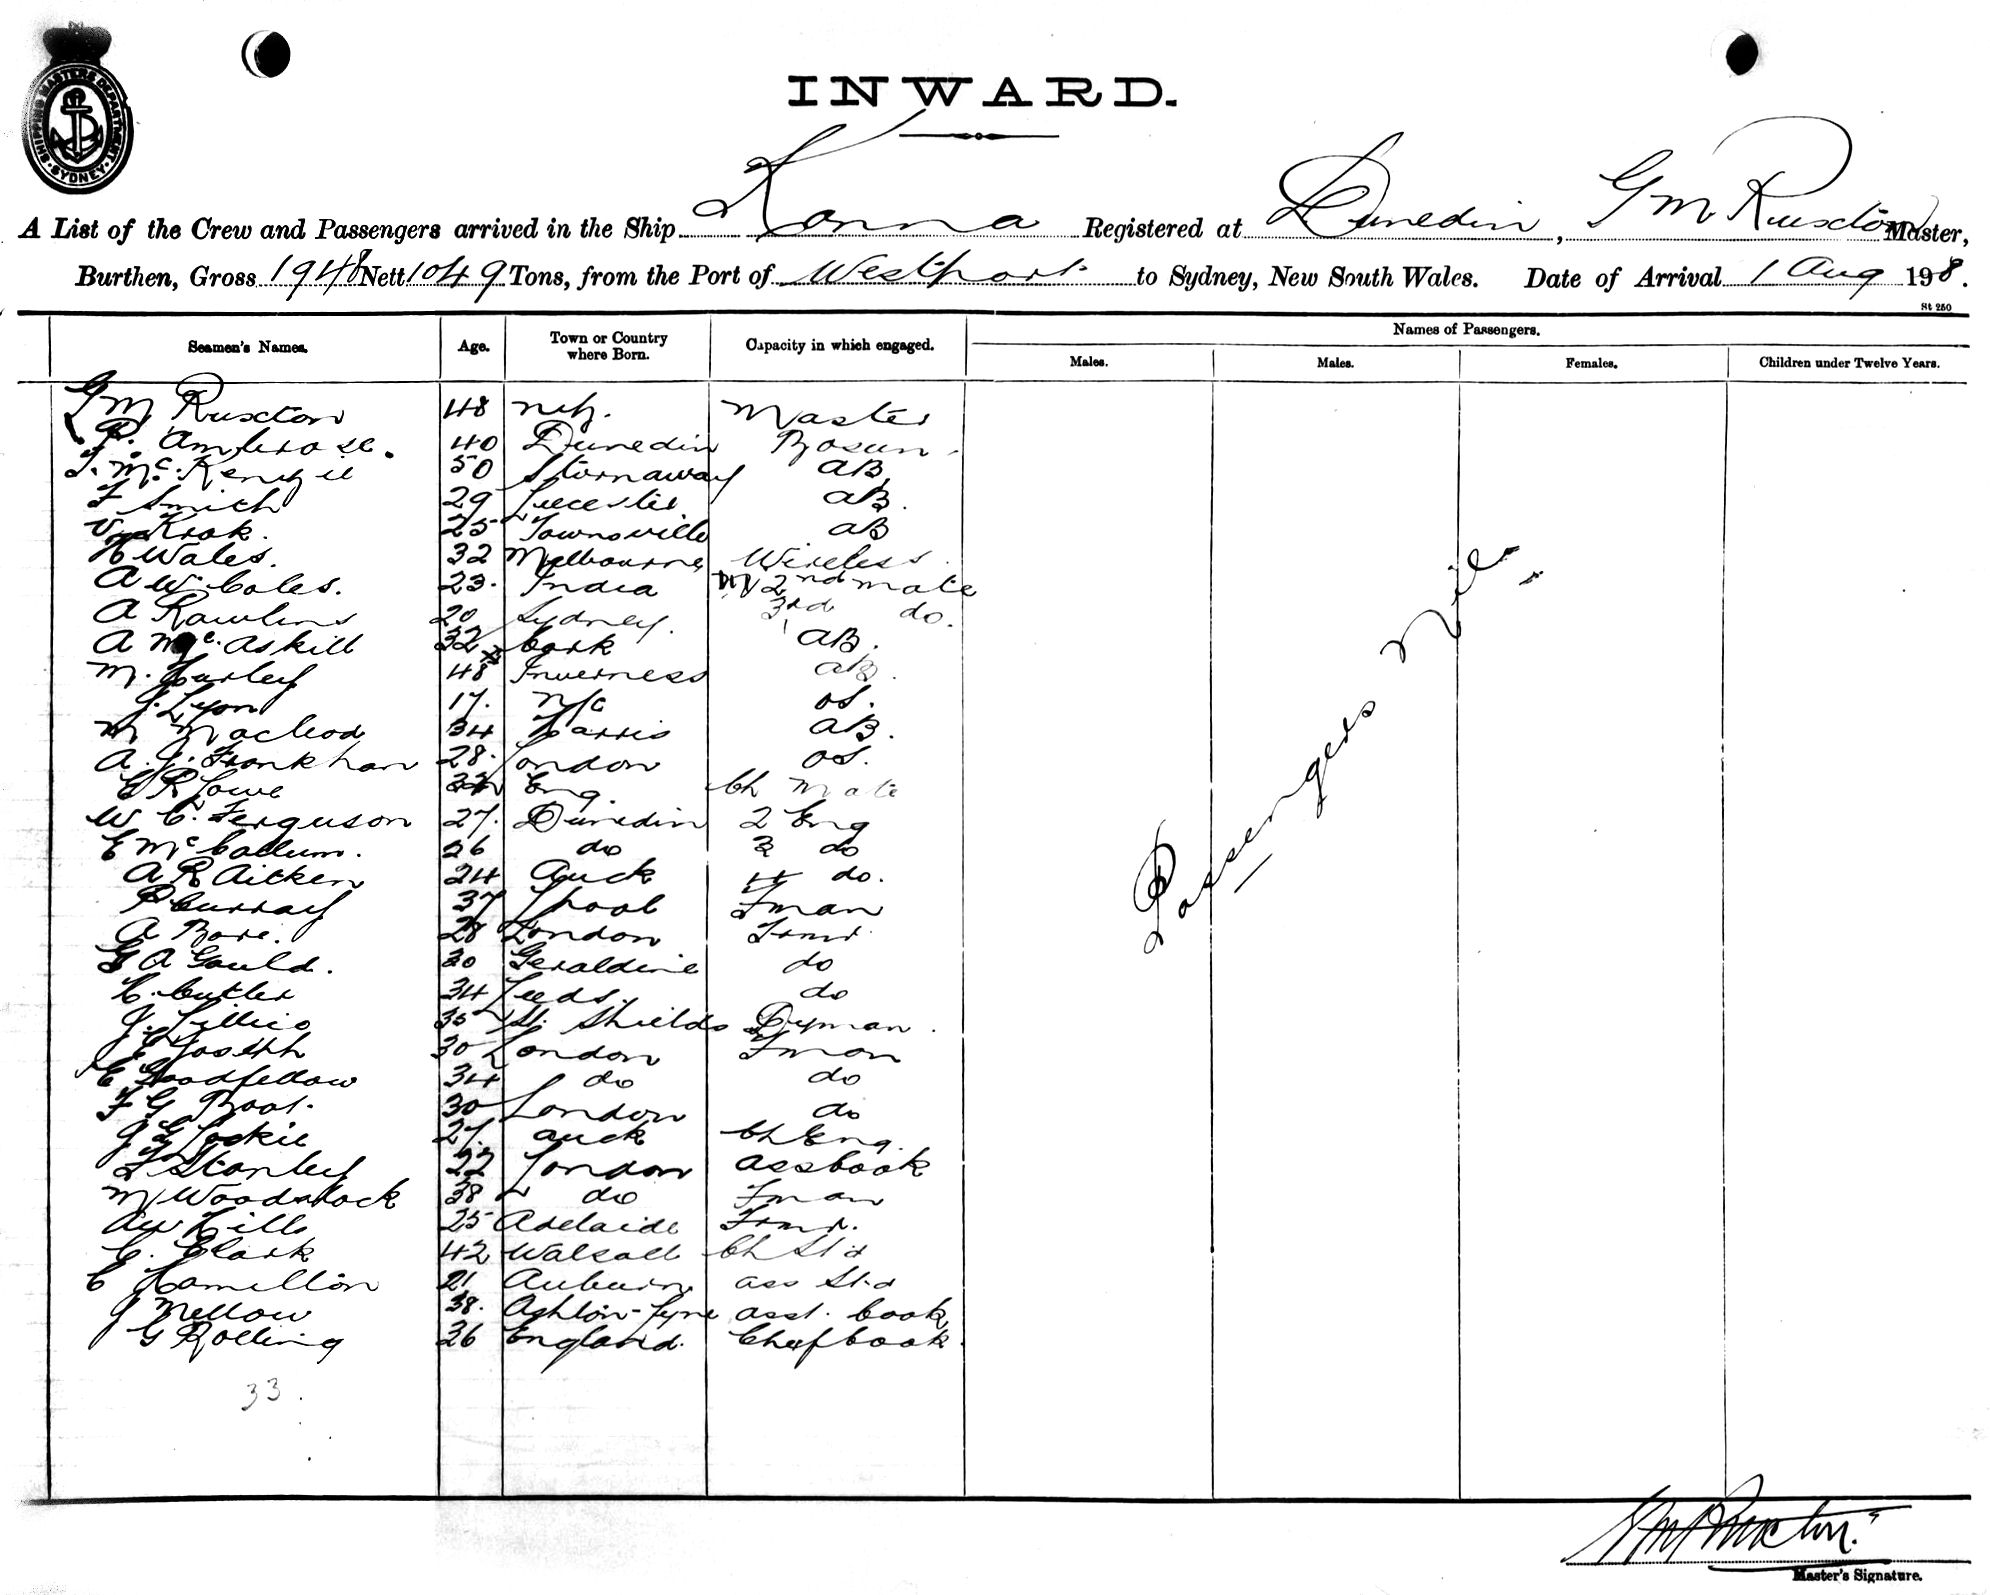 SHIPPING MASTERS DEPARTMENT. SYDNEY.
INWARD.
A List of the Crew and Passengers arrived in the Ship Konna Registered at Dunedin, G M Ruxton Master,
Burthen, Gross 1948 Nett 1049 Tons, from the Port of Westport to Sydney, New South Wales. Date of Arrival 1 Aug 198.
St 250
Seamen's Names. Age. Town or Country where Born. Capacity in which engaged. Names of Passengers.
Males. Males. Females. Children under Twelve Years.
G M Ruxton 48 Master
P. Ambrose. 40 Dunedin Bosun
McKenzie 50 Stornaway AB
F Smith 29 Leicester AB.
V Krok. 25 Townsville AB
H Wales. 32 Melbourne Wireless
A W Coles. 23. India 2nd mate
A Rawlins 20 Sydney. 3rd do.
A McAskill 32 Cork AB.
M. Hurley 48 Inverness AB.
J. Lyon 17. OS.
M Macleod 34 Harris AB.
A. J. Frankham 28. London OS.
E R Lowe Eng. Ch Mate
W C. Ferguson 27. Dunedin 2 Eng
E McCallum. 26 do 3 do
A R Aitken 24 Auck 4 do.
P Curray 37 Lpool Fman
A Bore. 28 London Trmr.
G A Gould. 30 Geraldine do
H. Cutler 34 Leeds. do
J. Lillico 35 St. Shields Dyman.
E Joseph 30 London Fman
E Goodfellow 34 do do
F G Boot. 30 London do
J G Lockie 27. Auck Ch Eng.
L Stanley 22 London Ass Cook
M Woodstock 38 do Fman
A W Hills 25 Adelaide Trmr.
C. Clark 42 Walsall Ch Std
C Hamilton 21 Auburn ass Std
J Mellow 38. Ashton-Lyne asst. Cook
G Rolling 36 England. Chef Cook
33.
Passengers Nil.
G M Ruxton.
Master's Signature.